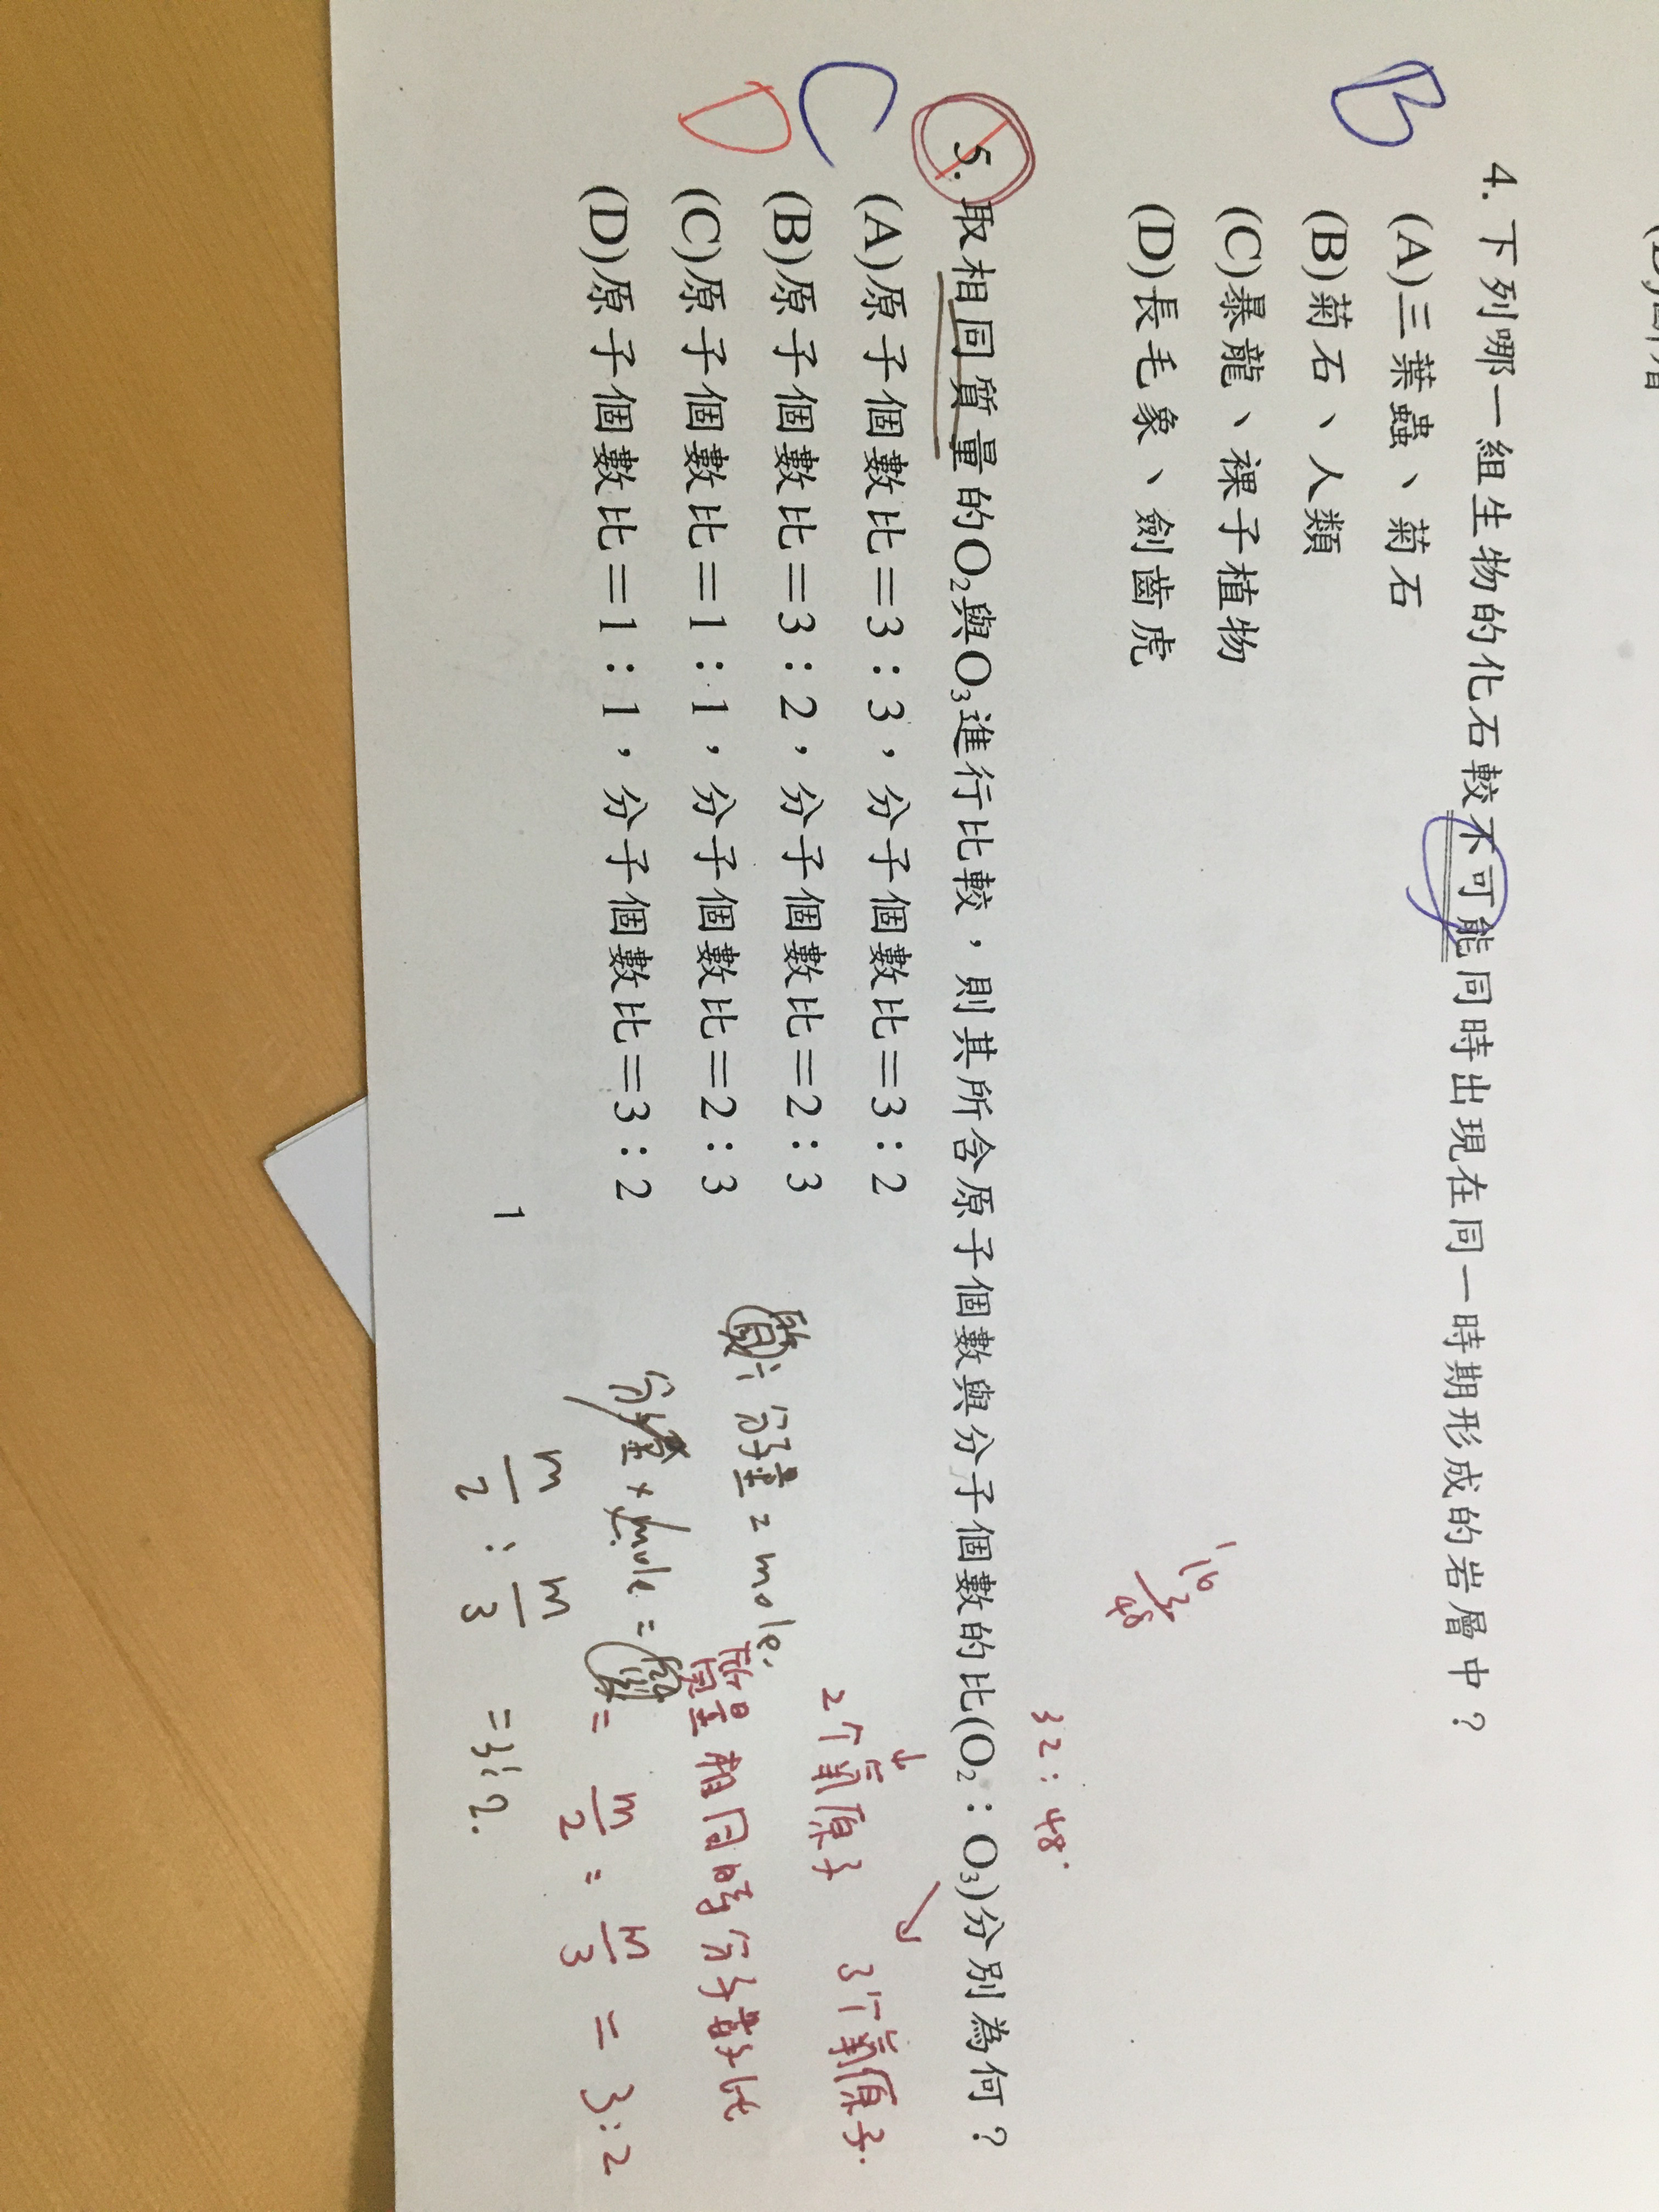 B
4. 下列哪一組生物的化石較不可能同時出現在同一時期形成的岩層中？
(A)三葉蟲、菊石
(B)菊石、人類
(C)暴龍、裸子植物
(D)長毛象、劍齒虎
16
3
48
32:48.
C
D
5. 取相同質量的O₂與O₃進行比較，則其所含原子個數與分子個數的比(O₂：O₃)分別為何？
(A)原子個數比＝3：3，分子個數比＝3：2
(B)原子個數比＝3：2，分子個數比＝2：3
(C)原子個數比＝1：1，分子個數比＝2：3
(D)原子個數比＝1：1，分子個數比＝3：2
↓
2个氧原子
3个氧原子.
質量相同時分子數比
= m/2 = m/3 = 3:2
質 ÷ 分子量 = mole.
分子量 × mole = 質
m/2 : m/3 = 3:2.
1